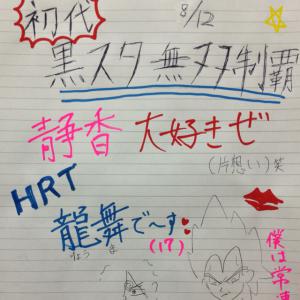 初代
8/12
黒スタ無双制覇
静香 大好きぜ
(片想い)笑
HRT
龍舞で〜す
りょう ま
(17)
僕は常連